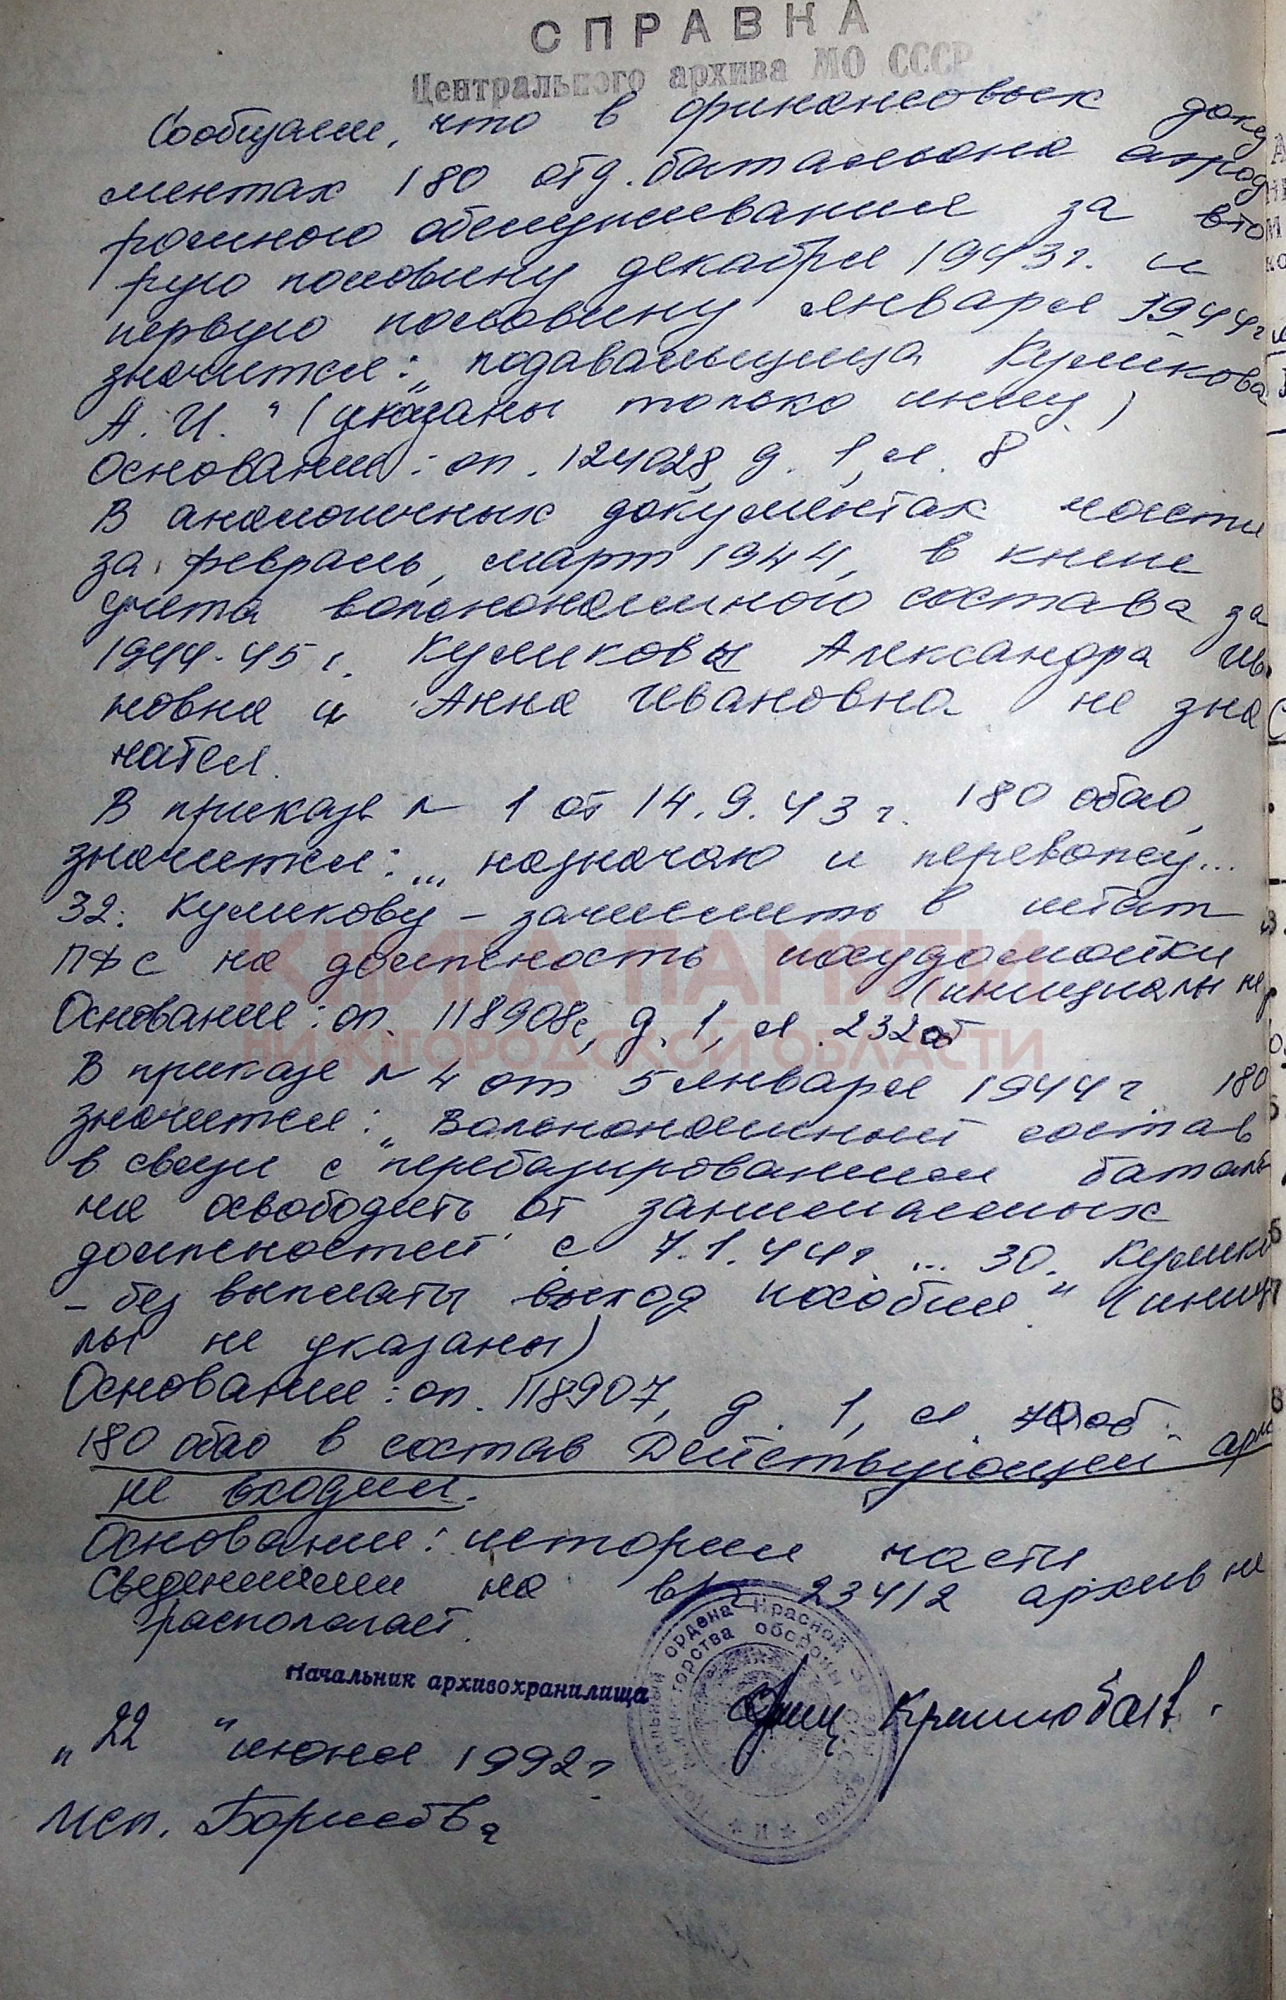 СПРАВКА
Центрального архива МО СССР
Сообщаем, что в финансовых доку
ментах 180 отд. батальона аэрод
ромного обслуживания за вто
рую половину декабря 1943 г. и
первую половину января 1944 г
значится: „подавальщица Куликова
А. И." (указаны только иниц.)
Основание: оп. 124028, д. 1, л. 8
В аналогичных документах части
за февраль, март 1944, в книге
учета вольнонаемного состава за
1944-45 г. Куликовы Александра Ива
новна и Анна Ивановна не зна
чатся.
В приказе N 1 от 14.9.43 г. 180 обао,
значится: „... назначаю и перевожу...
32. Куликову – зачислить в штат
ПФС на должность посудомойки
(инициалы не
Основание: оп. 118908с, д. 1, л. 232об
В приказе N 4 от 5 января 1944 г. 180
значится: „Вольнонаемный состав
в связи с перебазированием баталь
на освободить от занимаемых
должностей с 7.1.44 г. ... 30. Кулик
– без выплаты выход пособия" (иниц
лы не указаны)
Основание: оп. 118907, д. 1, л. об.
180 обао в состав Действующей арм
не входил.
Основание: истории части
Сведениями на в/ч 23412 архив не
располагает.
Начальник архивохранилища
„22" июня 1992 г
Исп. Борисова
КНИГА ПАМЯТИ
НИЖЕГОРОДСКОЙ ОБЛАСТИ